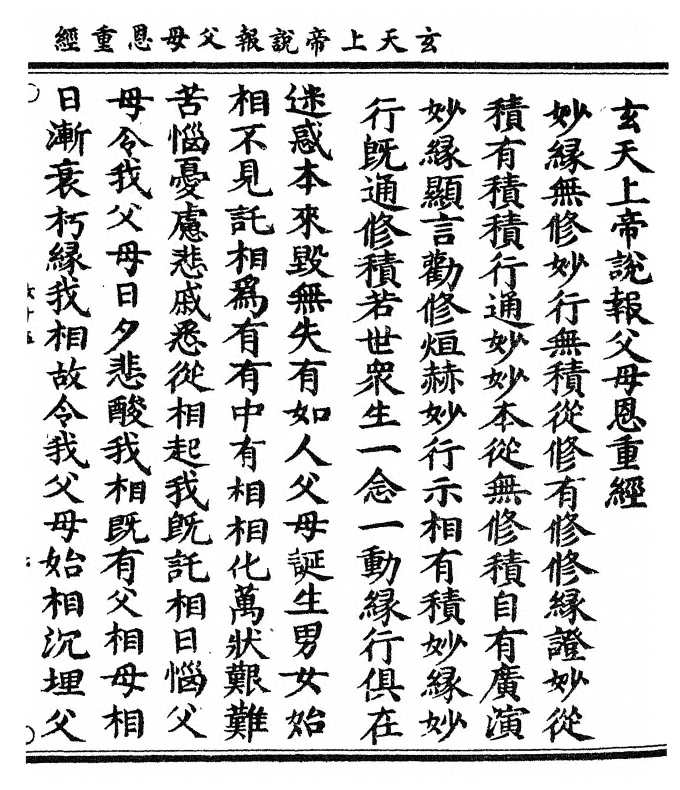 玄天上帝說報父母恩重經
玄天上帝說報父母恩重經
妙緣無修妙行無積從修有修修緣證妙從
積有積積行通妙妙本從無修積自有廣演
妙緣顯言勸修烜赫妙行示相有積妙緣妙
行既通修積若世衆生一念一動緣行俱在
迷惑本來毀無失有如人父母誕生男女始
相不見託相爲有有中有相相化萬狀艱難
苦惱憂慮悲戚悉從相起我既託相日惱父
母令我父母日夕悲酸我相既有父相母相
日漸衰朽緣我相故令我父母始相沉埋父